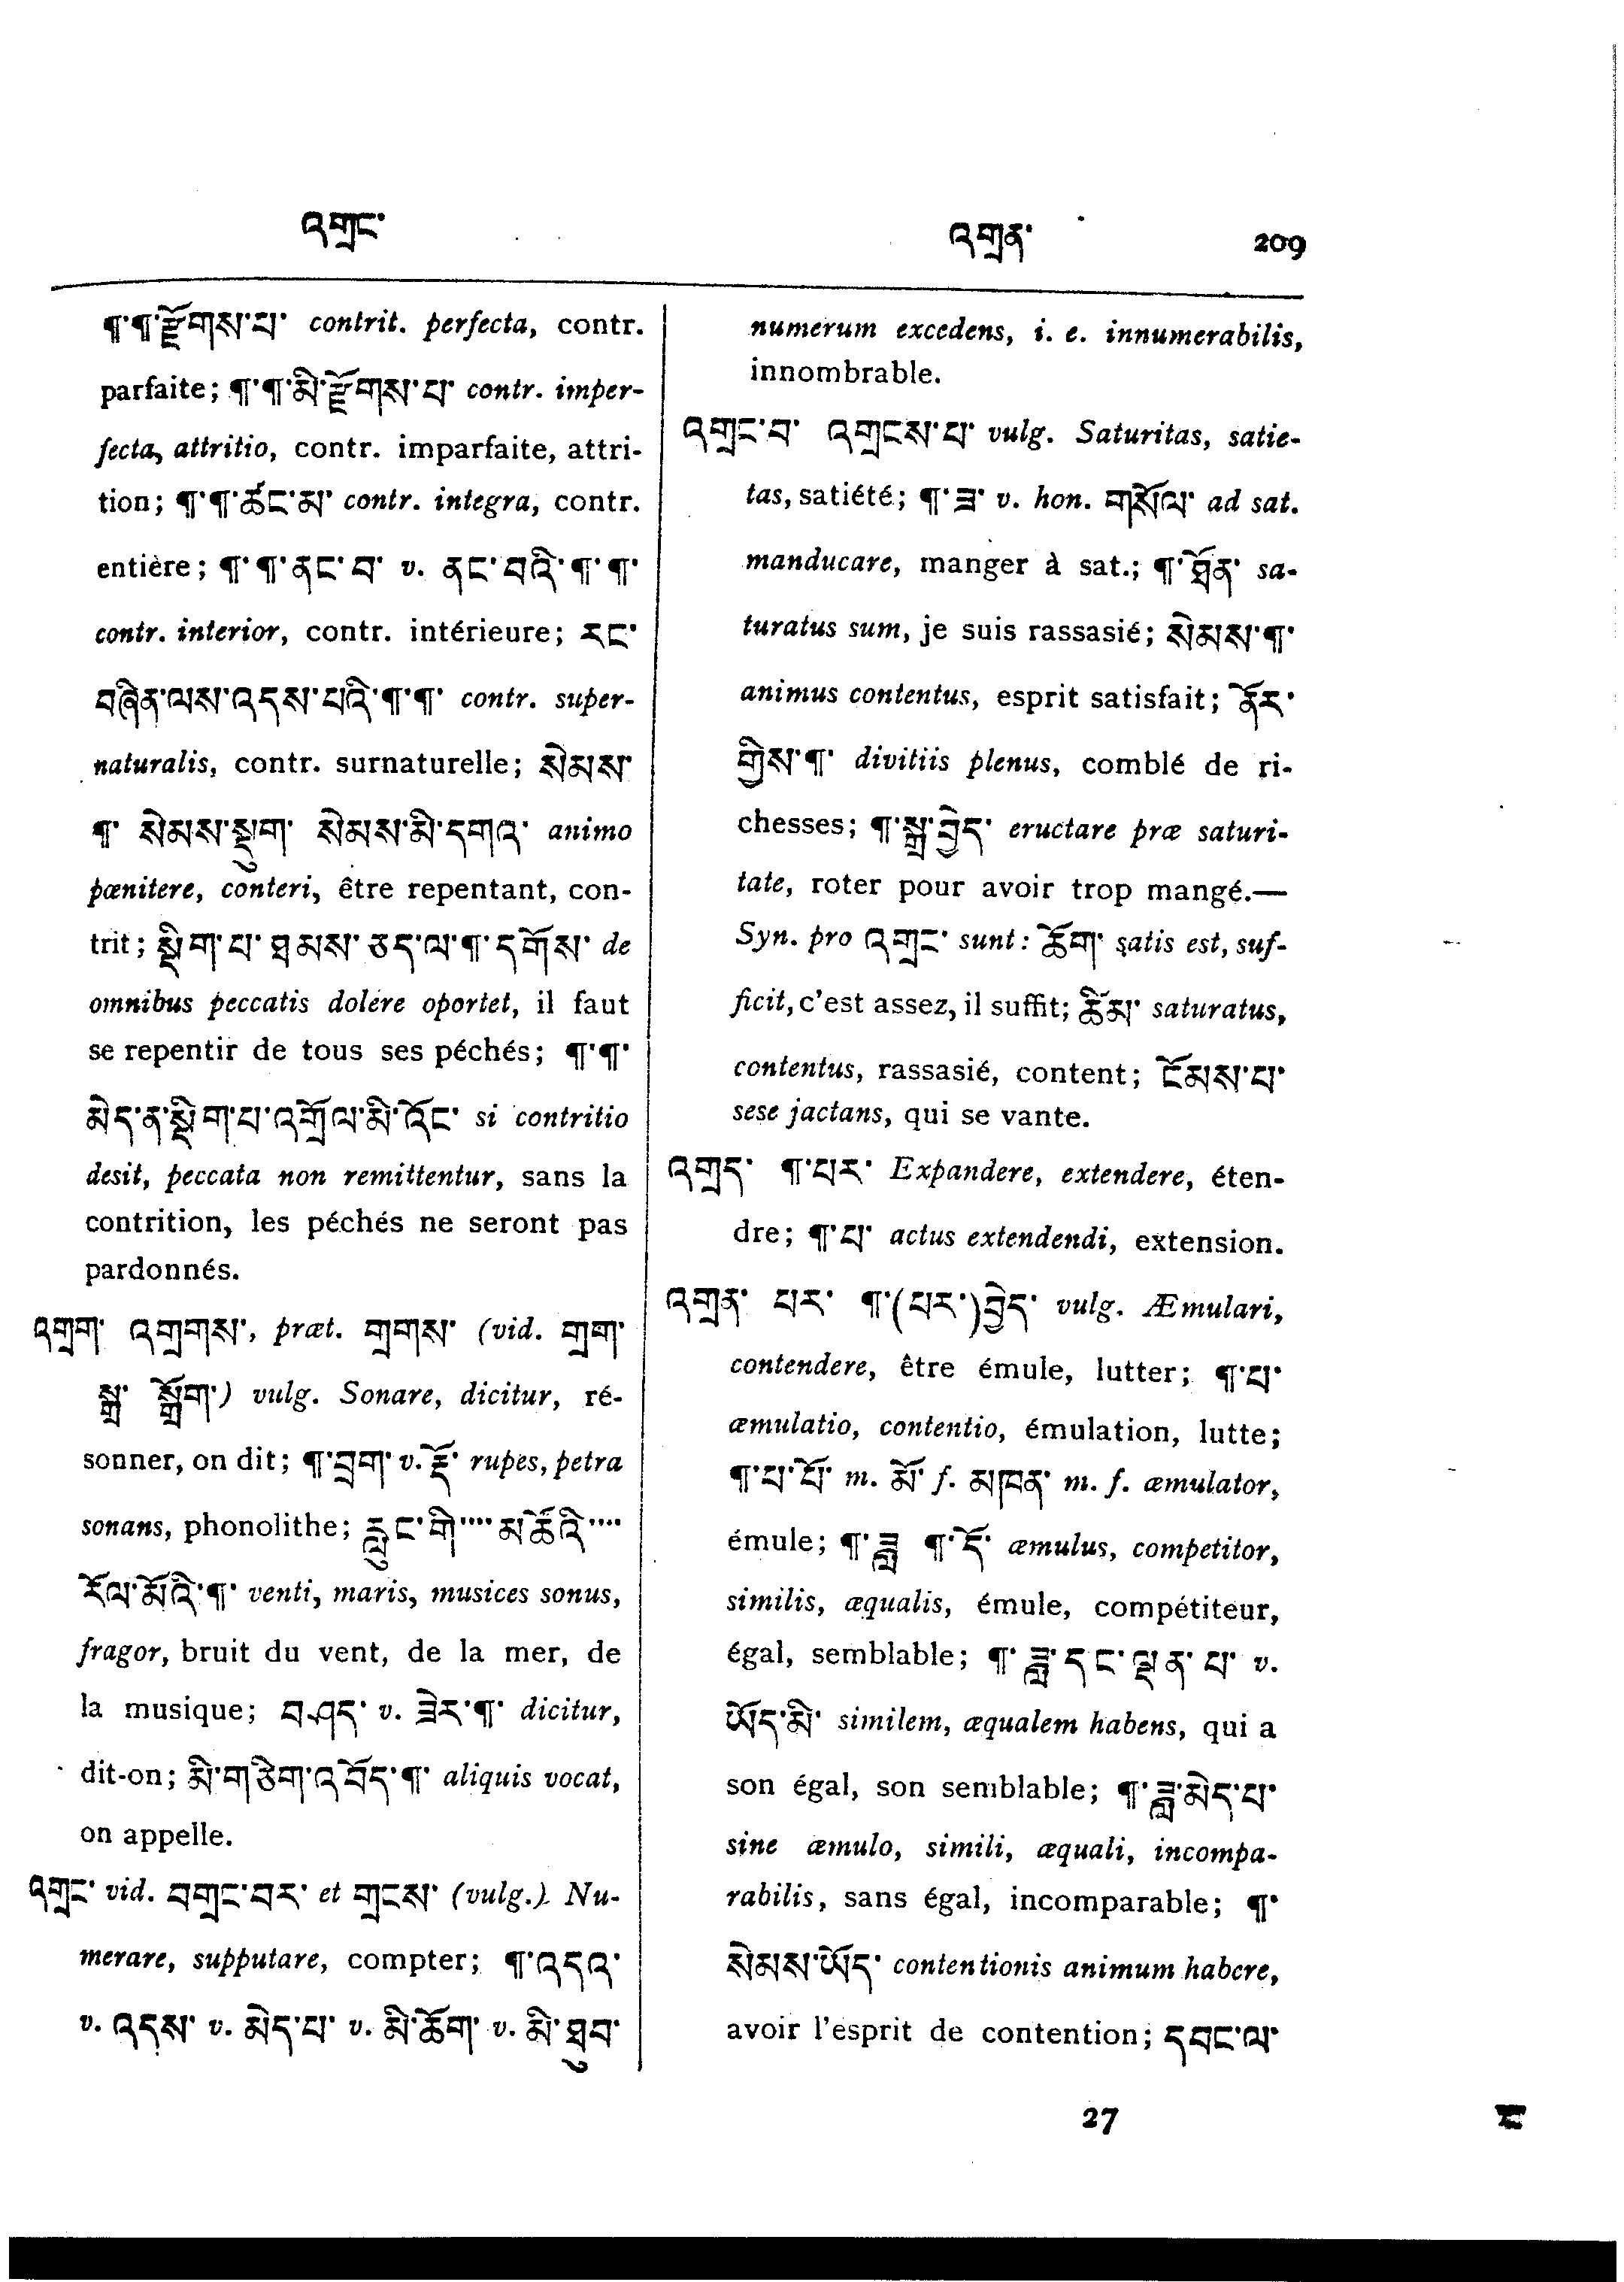 འགྲང་
འགྲན་ 209
¶་¶་རྫོགས་པ་ contrit. perfecta, contr.
parfaite; ¶་¶་མི་རྫོགས་པ་ contr. imper-
fecta, attritio, contr. imparfaite, attri-
tion; ¶་¶་ཚང་མ་ contr. integra, contr.
entière; ¶་¶་ནང་བ་ v. ནང་བའི་¶་¶་
contr. interior, contr. intérieure; རང་
བཞིན་ལས་འདས་པའི་¶་¶་ contr. super-
naturalis, contr. surnaturelle; སེམས་
¶་ སེམས་སྡུག་ སེམས་མི་དགའ་ animo
pœnitere, conteri, être repentant, con-
trit; སྡིག་པ་ཐམས་ཅད་ལ་¶་དགོས་ de
omnibus peccatis dolere oportet, il faut
se repentir de tous ses péchés; ¶་¶་
མེད་ན་སྡིག་པ་འགྲོལ་མི་འོང་ si contritio
desit, peccata non remittentur, sans la
contrition, les péchés ne seront pas
pardonnés.
འགྲག་ འགྲགས་, præt. གྲགས་ (vid. གྲག་
སྒྲ་ སྒྲོག་) vulg. Sonare, dicitur, ré-
sonner, on dit; ¶་བྲག་ v. རྡོ་ rupes, petra
sonans, phonolithe; རླུང་གི་···· མཚོའི་····
རོལ་མོའི་¶་ venti, maris, musices sonus,
fragor, bruit du vent, de la mer, de
la musique; བཤད་ v. ཟེར་¶་ dicitur,
dit-on; མི་གཅིག་འབོད་¶་ aliquis vocat,
on appelle.
འགྲང་ vid. བགྲང་བར་ et གྲངས་ (vulg.). Nu-
merare, supputare, compter; ¶་འདའ་
v. འདས་ v. མེད་པ་ v. མི་ཆོག་ v. མི་ཐུབ་
numerum excedens, i. e. innumerabilis,
innombrable.
འགྲང་བ་ འགྲངས་པ་ vulg. Saturitas, satie-
tas, satiété; ¶་ཟ་ v. hon. གསོལ་ ad sat.
manducare, manger à sat.; ¶་ཐོན་ sa-
turatus sum, je suis rassasié; སེམས་¶་
animus contentus, esprit satisfait; ནོར་
གྱིས་¶་ divitiis plenus, comblé de ri-
chesses; ¶་སྒྲ་བྱེད་ eructare præ saturi-
tate, roter pour avoir trop mangé.—
Syn. pro འགྲང་ sunt: ཆོག་ satis est, suf-
ficit, c'est assez, il suffit; ཚིམ་ saturatus,
contentus, rassasié, content; ངོམས་པ་
sese jactans, qui se vante.
འགྲད་ ¶་པར་ Expandere, extendere, éten-
dre; ¶་པ་ actus extendendi, extension.
འགྲན་ པར་ ¶་(པར་)བྱེད་ vulg. Æmulari,
contendere, être émule, lutter; ¶་པ་
æmulatio, contentio, émulation, lutte;
¶་པ་པོ་ m. མོ་ f. མཁན་ m. f. æmulator,
émule; ¶་ཟླ ¶་དོ་ æmulus, competitor,
similis, æqualis, émule, compétiteur,
égal, semblable; ¶་ཟླ་དང་ལྡན་པ་ v.
ཡོད་མི་ similem, æqualem habens, qui a
son égal, son semblable; ¶་ཟླ་མེད་པ་
sine æmulo, simili, æquali, incompa-
rabilis, sans égal, incomparable; ¶་
སེམས་ཡོད་ contentionis animum habere,
avoir l'esprit de contention; དབང་ལ་
27